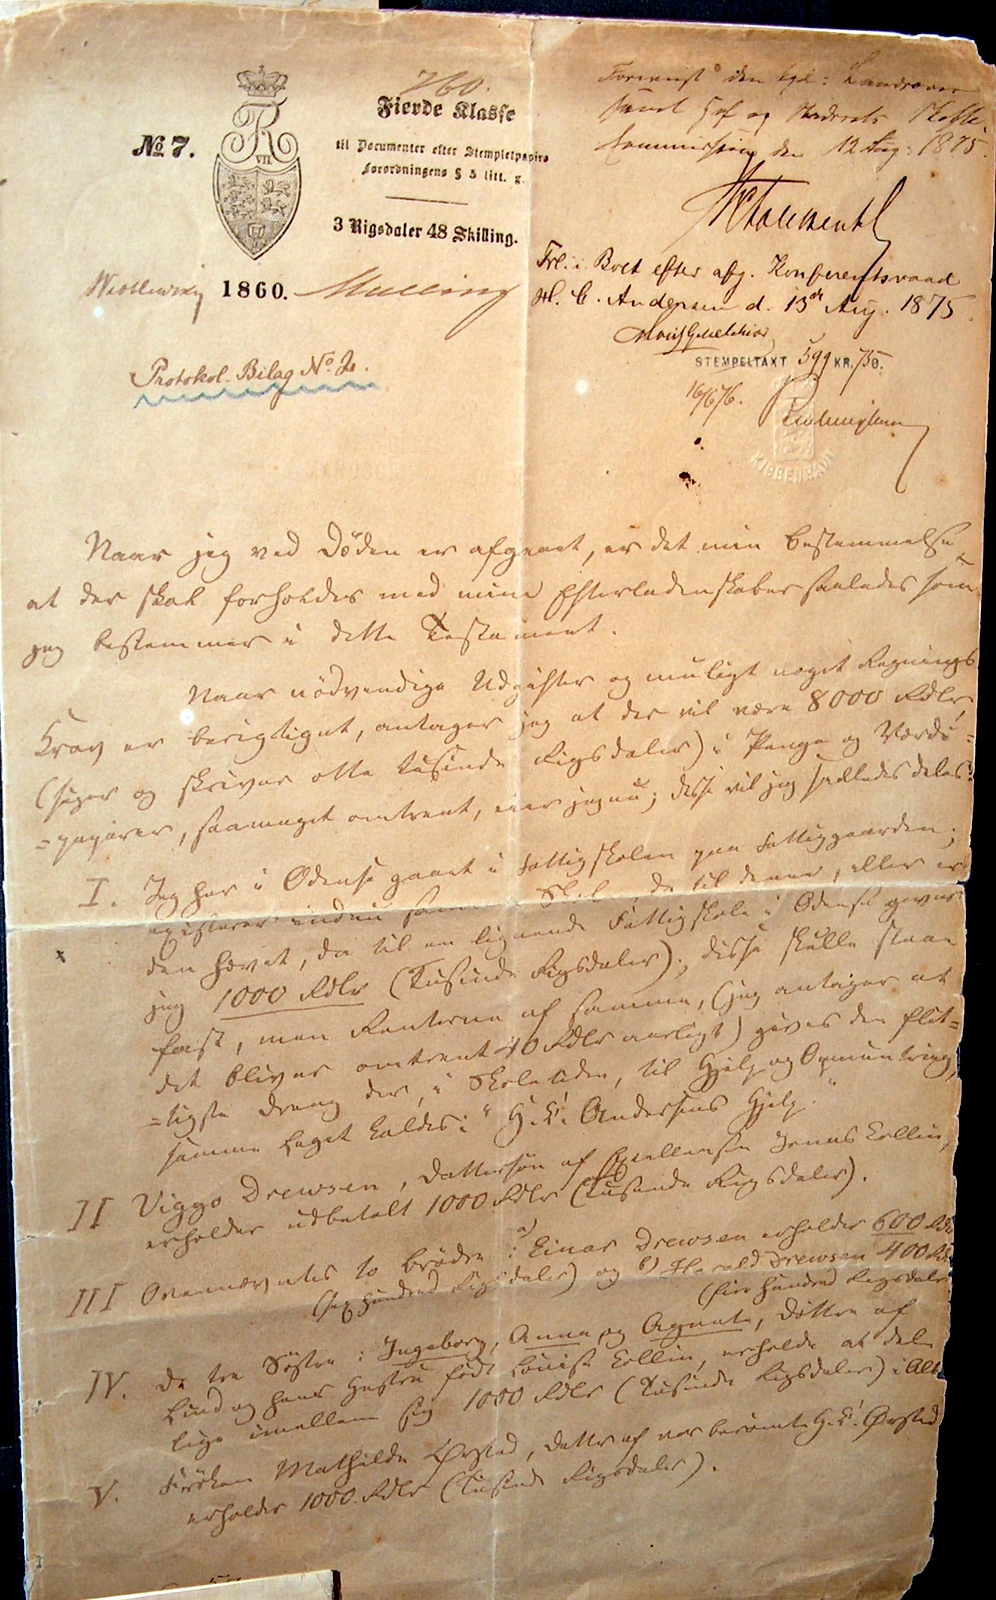 760.
Fierde Klasse
No 7.
R
VII
til Documenter efter Stempletpapirs
Forordningens § 5 litt. g.
3 Rigsdaler 48 Skilling.
1860.
Protokol-Bilag No 2.
Foreviist den kgl: Landsover
samt Hof og Stadsrets Skifte
Commission den 12 Aug: 1875.
Frl. i Boet efter afg. Konferentsraad
H. C. Andersen d. 13de Aug. 1875
Moritz G Melchior
STEMPELTAXT 599 KR. /50.
16/6/76.
KIØBENHAVN
Naar jeg ved Døden er afgaaet, er det min Bestemmelse
at der skal forholdes med mine Efterladenskaber saaledes som
jeg bestemmer i dette Testament.
Naar nödvendige Udgifter og muligt noget Regnings
Krav er berigtiget, antager jeg at der vil være 8000 Rdlr
(siger og skriver otte Tusinde Rigsdaler) i Penge og Værdi=
=papirer, saameget omtrent, eier jeg nu; disse vil jeg saaledes deles:
I. Jeg har i Odense gaaet i Fattigskolen paa Fattiggaarden;
existerer endnu samme Skole, da til denne, eller er
den hævet, da til en lignende Fattigskole i Odense giver
jeg 1000 Rdlr (Tusinde Rigsdaler); disse skulle staae
fast, men Renterne af samme, (jeg antager at
det bliver omtrent 40 Rdlr aarligt) gives den flit=
=tigste Dreng der, i Skoletiden, til Hjelp og Opmuntring,
samme Legat kaldes: "H. C. Andersens Hjelp."
II Viggo Drewsen, Dattersön af Excellense Jonas Collin,
erholder udbetalt 1000 Rdlr (Tusinde Rigsdaler).
III Ovennævntes to Brødre: a) Einar Drewsen erholder 600 Rdlr
(sex hundred Rigsdaler) og b) Harald Drewsen 400 Rdlr
(fire hundred Rigsdaler
IV. De tre Söstre: Ingeborg, Anna og Agnete, Döttre af
Lind og hans Hustru född Louise Collin, erholde at dele
lige imellem sig 1000 Rdlr (Tusinde Rigsdaler) i Alt.
V. Fröken Mathilde Ørsted, Datter af vor berømte H. C. Ørsted
erholder 1000 Rdlr (Tusinde Rigsdaler).